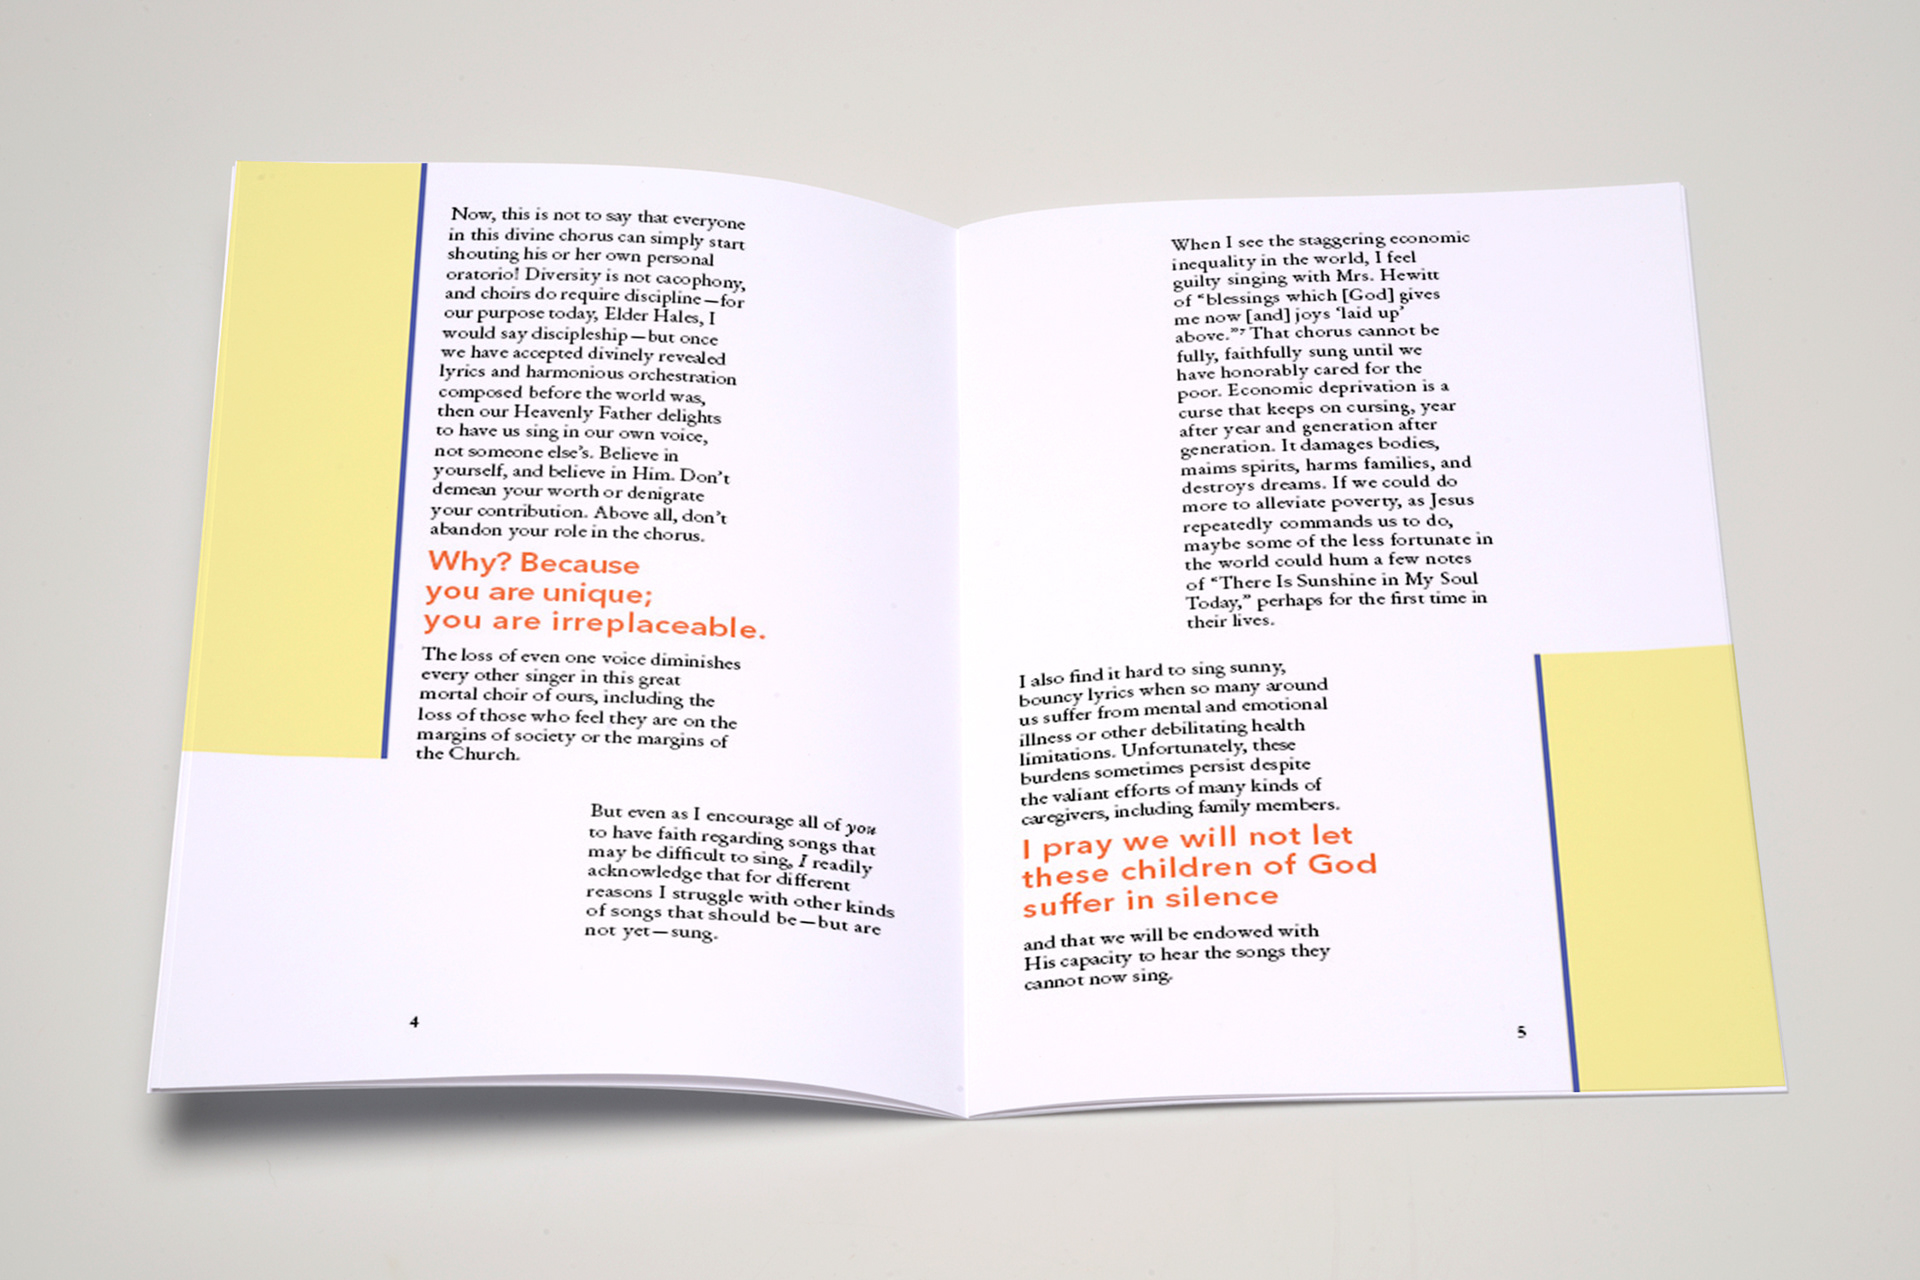 Now, this is not to say that everyone
in this divine chorus can simply start
shouting his or her own personal
oratorio! Diversity is not cacophony,
and choirs do require discipline—for
our purpose today, Elder Hales, I
would say discipleship—but once
we have accepted divinely revealed
lyrics and harmonious orchestration
composed before the world was,
then our Heavenly Father delights
to have us sing in our own voice,
not someone else's. Believe in
yourself, and believe in Him. Don't
demean your worth or denigrate
your contribution. Above all, don't
abandon your role in the chorus.
Why? Because
you are unique;
you are irreplaceable.
The loss of even one voice diminishes
every other singer in this great
mortal choir of ours, including the
loss of those who feel they are on the
margins of society or the margins of
the Church.
But even as I encourage all of you
to have faith regarding songs that
may be difficult to sing, I readily
acknowledge that for different
reasons I struggle with other kinds
of songs that should be—but are
not yet—sung.
4
When I see the staggering economic
inequality in the world, I feel
guilty singing with Mrs. Hewitt
of “blessings which [God] gives
me now [and] joys ‘laid up’
above.”⁷ That chorus cannot be
fully, faithfully sung until we
have honorably cared for the
poor. Economic deprivation is a
curse that keeps on cursing, year
after year and generation after
generation. It damages bodies,
maims spirits, harms families, and
destroys dreams. If we could do
more to alleviate poverty, as Jesus
repeatedly commands us to do,
maybe some of the less fortunate in
the world could hum a few notes
of “There Is Sunshine in My Soul
Today,” perhaps for the first time in
their lives.
I also find it hard to sing sunny,
bouncy lyrics when so many around
us suffer from mental and emotional
illness or other debilitating health
limitations. Unfortunately, these
burdens sometimes persist despite
the valiant efforts of many kinds of
caregivers, including family members.
I pray we will not let
these children of God
suffer in silence
and that we will be endowed with
His capacity to hear the songs they
cannot now sing.
5